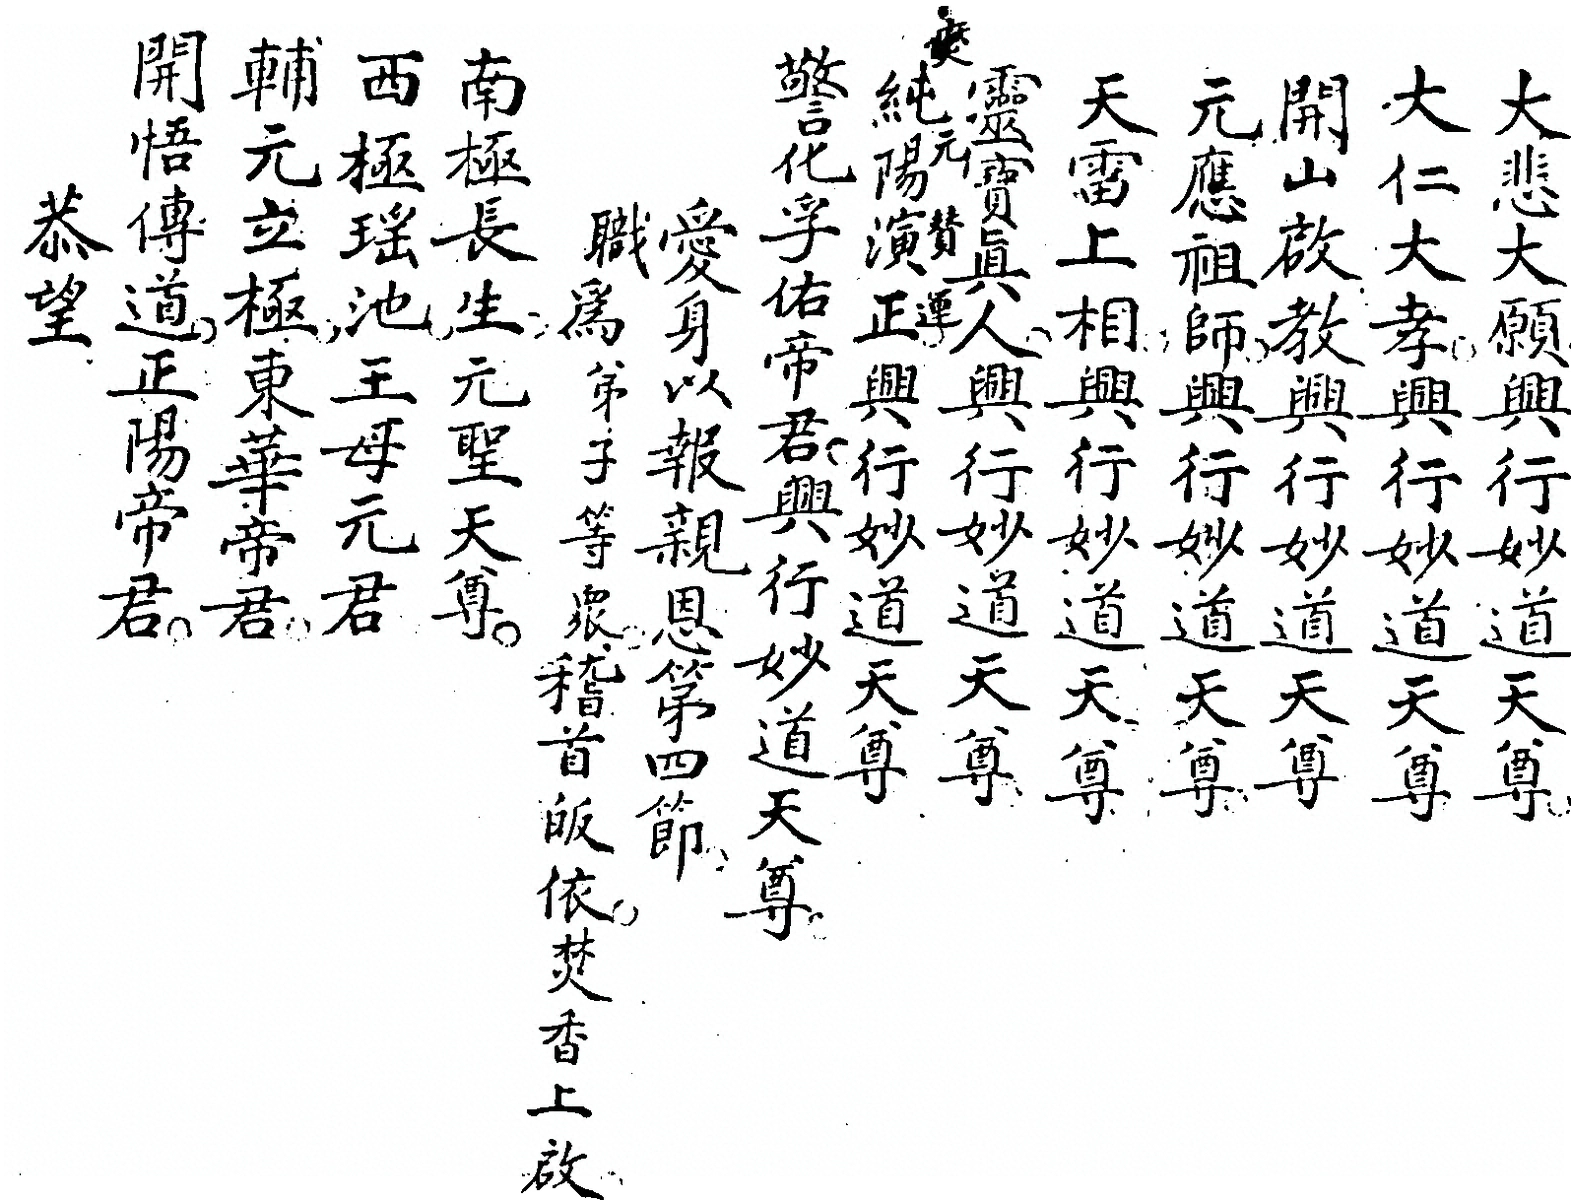 大悲大願興行妙道天尊
大仁大孝興行妙道天尊
開山啟教興行妙道天尊
元應祖師興行妙道天尊
天雷上相興行妙道天尊
靈寶眞人興行妙道天尊
元贊運
純陽演正興行妙道天尊
警化孚佑帝君興行妙道天尊
愛身以報親恩第四節
職爲弟子等衆稽首皈依焚香上啟
南極長生元聖天尊
西極瑶池王母元君
輔元立極東華帝君
開悟傳道正陽帝君
恭望